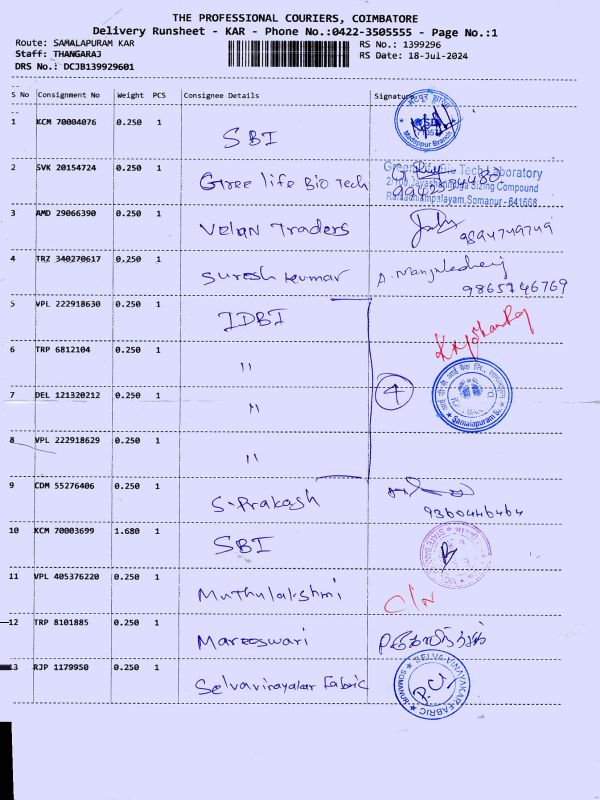 THE PROFESSIONAL COURIERS, COIMBATORE
Delivery Runsheet - KAR - Phone No.:0422-3505555 - Page No.:1
Route: SAMALAPURAM KAR RS No.: 1399296
Staff: THANGARAJ RS Date: 18-Jul-2024
DRS No.: DCJB139929601
S No Consignment No Weight PCS Consignee Details Signature
1 KCM 70004076 0.250 1 SBI
Madappur Branch
2 SVK 20154724 0.250 1 Gree life Bio Tech
Green Life Bio Tech Laboratory
Sizing Compound
Somanur - 641668
3 AMD 29066390 0.250 1 Velan Traders
9894749749
4 TRZ 340270617 0.250 1 Suresh kumar
9865746769
5 VPL 222918630 0.250 1 IDBI
6 TRP 6812104 0.250 1 "
7 DEL 121320212 0.250 1 " 4
Samalapuram
8 VPL 222918629 0.250 1 "
9 CDM 55276406 0.250 1 S. Prakash
9360446464
10 KCM 70003699 1.680 1 SBI
11 VPL 405376220 0.250 1 Muthulakshmi
12 TRP 8101885 0.250 1 Mareeswari
13 RJP 1179950 0.250 1 Selvavinayakar Fabric
SELVA VINAYAKAR FABRIC
SOMANUR